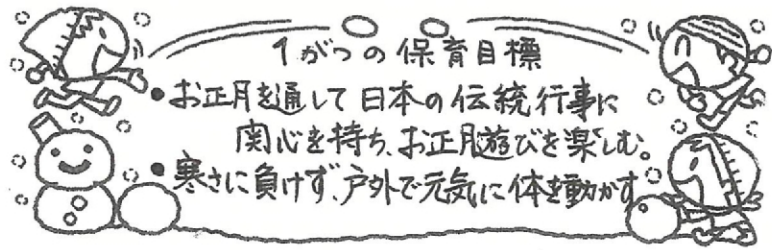 1がつの保育目標
•お正月を通して日本の伝統行事に
関心を持ち、お正月遊びを楽しむ。
•寒さに負けず、戸外で元気に体を動かす。